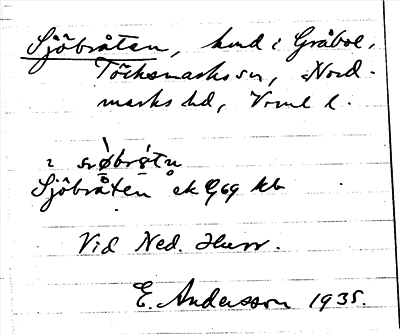 Sjöbråten, hmd i Gråbol,
Töcksmarks sn, Nord-
marks hd, Vrml l.
i
Sjöbråten ek Q69 kb
Vid Ned. Hurr.
E. Andersson 1935.